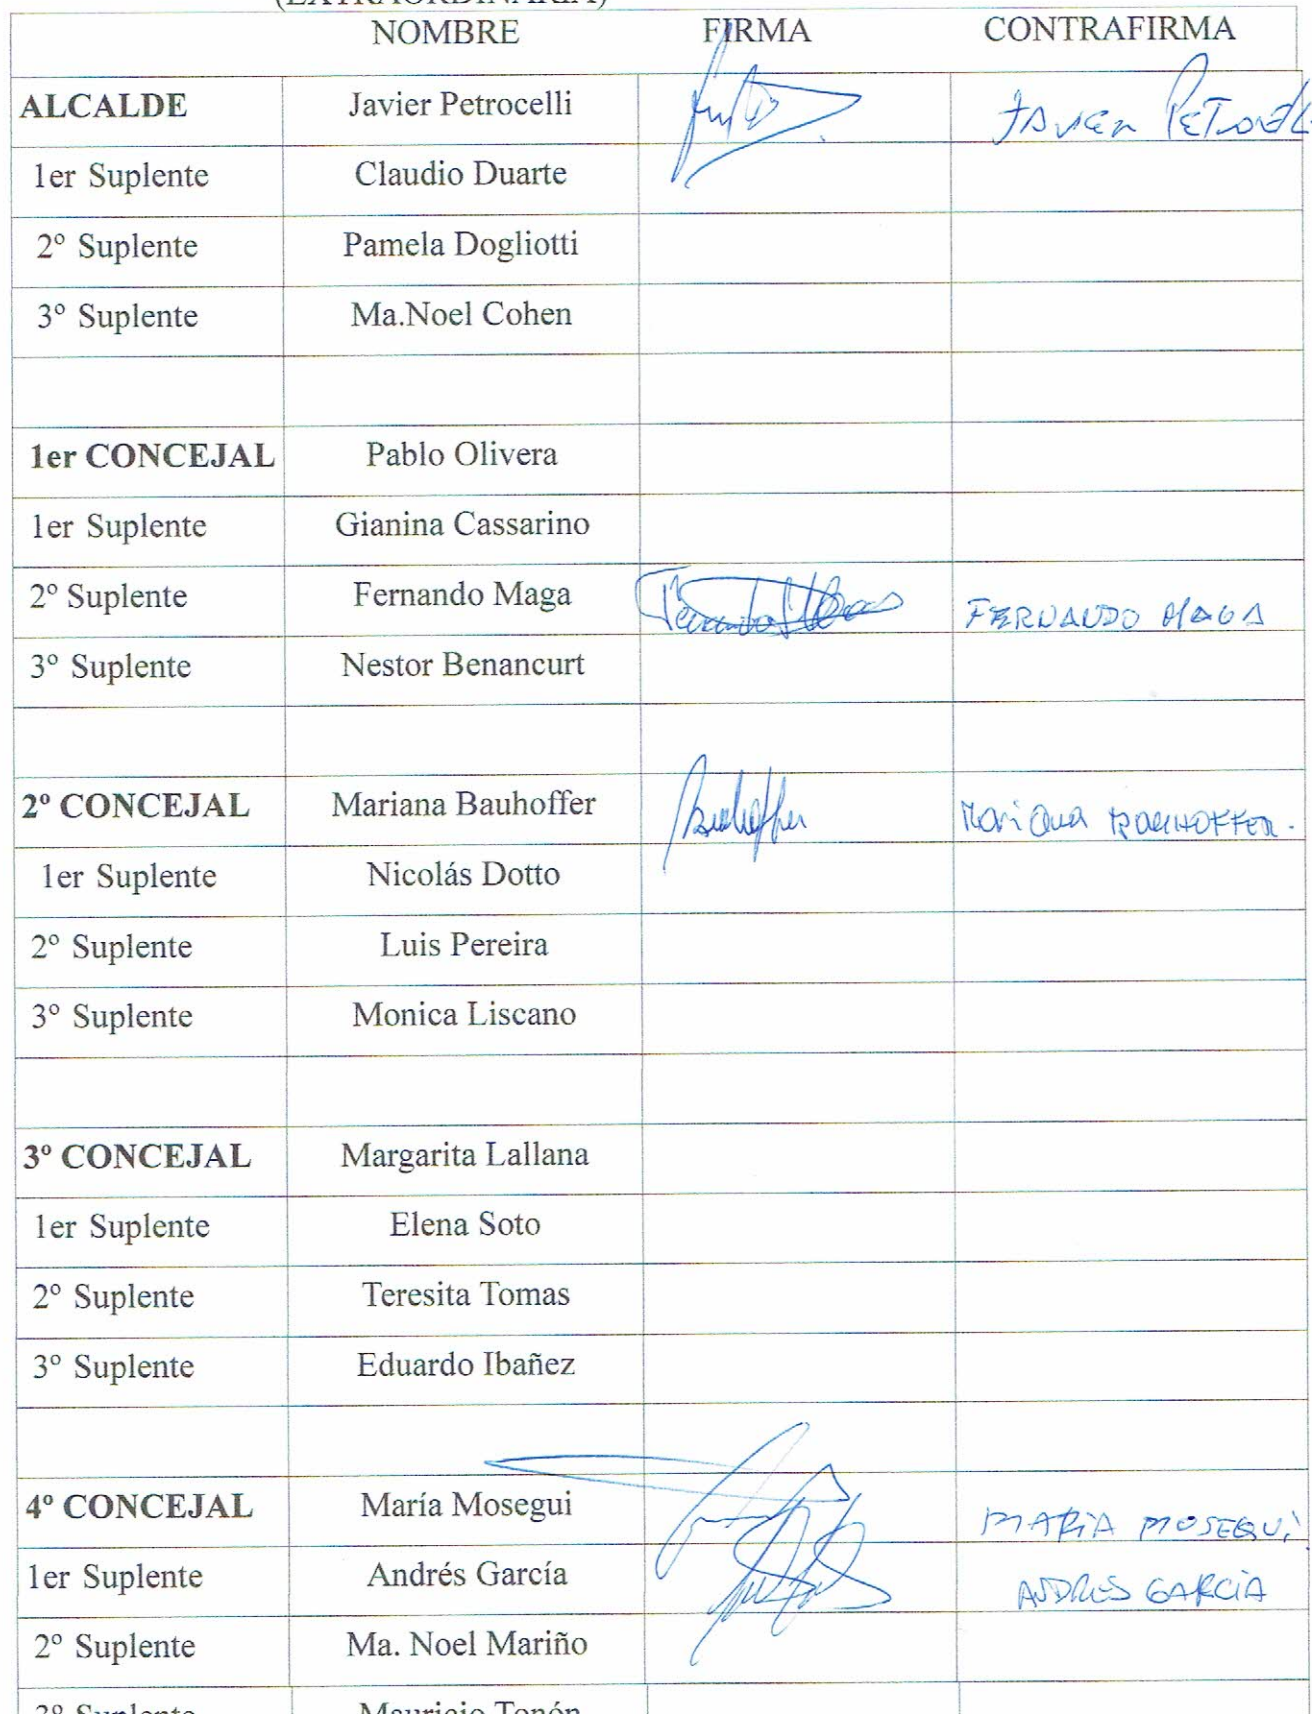 (EXTRAORDINARIA)
NOMBRE FIRMA CONTRAFIRMA
ALCALDE Javier Petrocelli Javier Petrocelli
1er Suplente Claudio Duarte
2º Suplente Pamela Dogliotti
3º Suplente Ma.Noel Cohen
1er CONCEJAL Pablo Olivera
1er Suplente Gianina Cassarino
2º Suplente Fernando Maga FERNANDO MAGA
3º Suplente Nestor Benancurt
2º CONCEJAL Mariana Bauhoffer Bauhoffer Mariana BAUHOFFER.
1er Suplente Nicolás Dotto
2º Suplente Luis Pereira
3º Suplente Monica Liscano
3º CONCEJAL Margarita Lallana
1er Suplente Elena Soto
2º Suplente Teresita Tomas
3º Suplente Eduardo Ibañez
4º CONCEJAL María Mosegui MARIA MOSEGUI
1er Suplente Andrés García ANDRES GARCIA
2º Suplente Ma. Noel Mariño
3º Suplente Mauricio Tonón